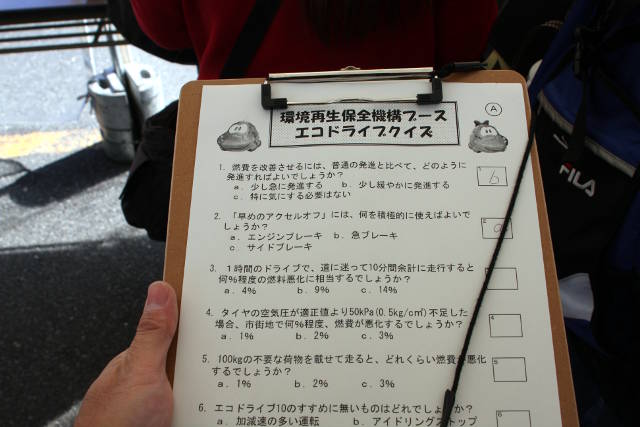 環境再生保全機構ブース
エコドライブクイズ
A
1. 燃費を改善させるには、普通の発進と比べて、どのように
発進すればよいでしょうか？
a. 少し急に発進する b. 少し緩やかに発進する
c. 特に気にする必要はない
b
2. 「早めのアクセルオフ」には、何を積極的に使えばよいで
しょうか？
a. エンジンブレーキ b. 急ブレーキ
c. サイドブレーキ
2
a
3. 1時間のドライブで、道に迷って10分間余計に走行すると
何％程度の燃料悪化に相当するでしょうか？
a. 4% b. 9% c. 14%
4. タイヤの空気圧が適正値より50kPa(0.5kg/c㎡)不足した
場合、市街地で何％程度、燃費が悪化するでしょうか？
a. 1% b. 2% c. 3%
4
5. 100kgの不要な荷物を載せて走ると、どれくらい燃費が悪化
するでしょうか？
a. 1% b. 2% c. 3%
5
6. エコドライブ10のすすめに無いものはどれでしょうか？
a. 加減速の多い運転 b. アイドリングストップ
6
FILA